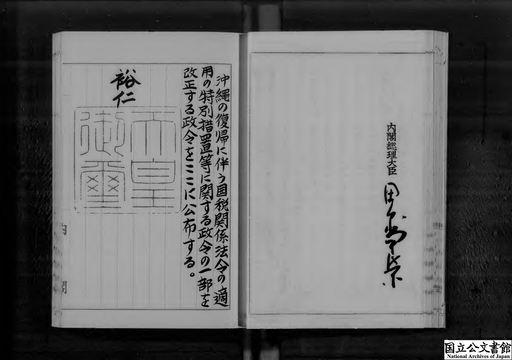 内閣総理大臣
田中角栄
沖縄の復帰に伴う国税関係法令の適
用の特別措置等に関する政令の一部を
改正する政令をここに公布する。
裕仁
天皇
御璽
内閣
国立公文書館
National Archives of Japan